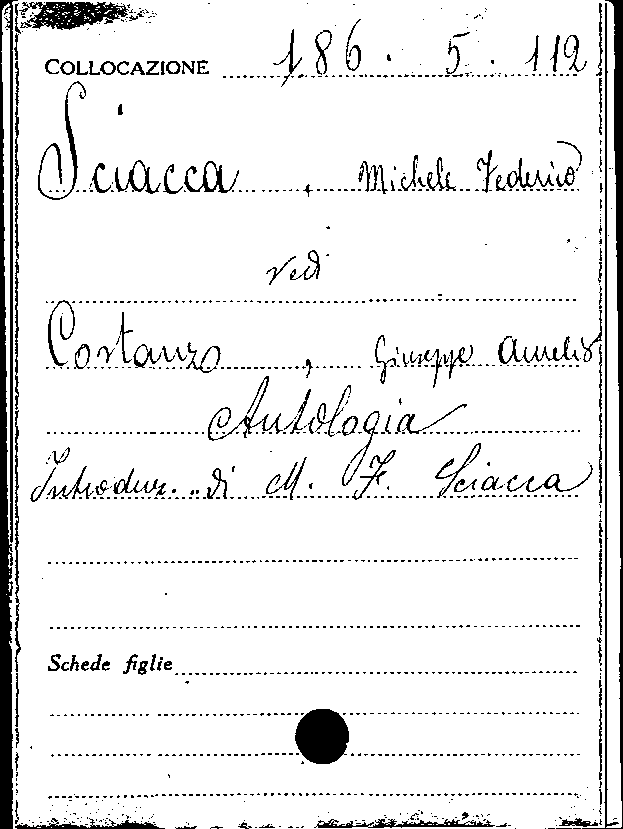 COLLOCAZIONE 186. 5. 112
Sciacca, Michele Federico
vedi
Costanzo, Giuseppe Aurelio
Antologia
Introduz. di M. F. Sciacca
Schede figlie